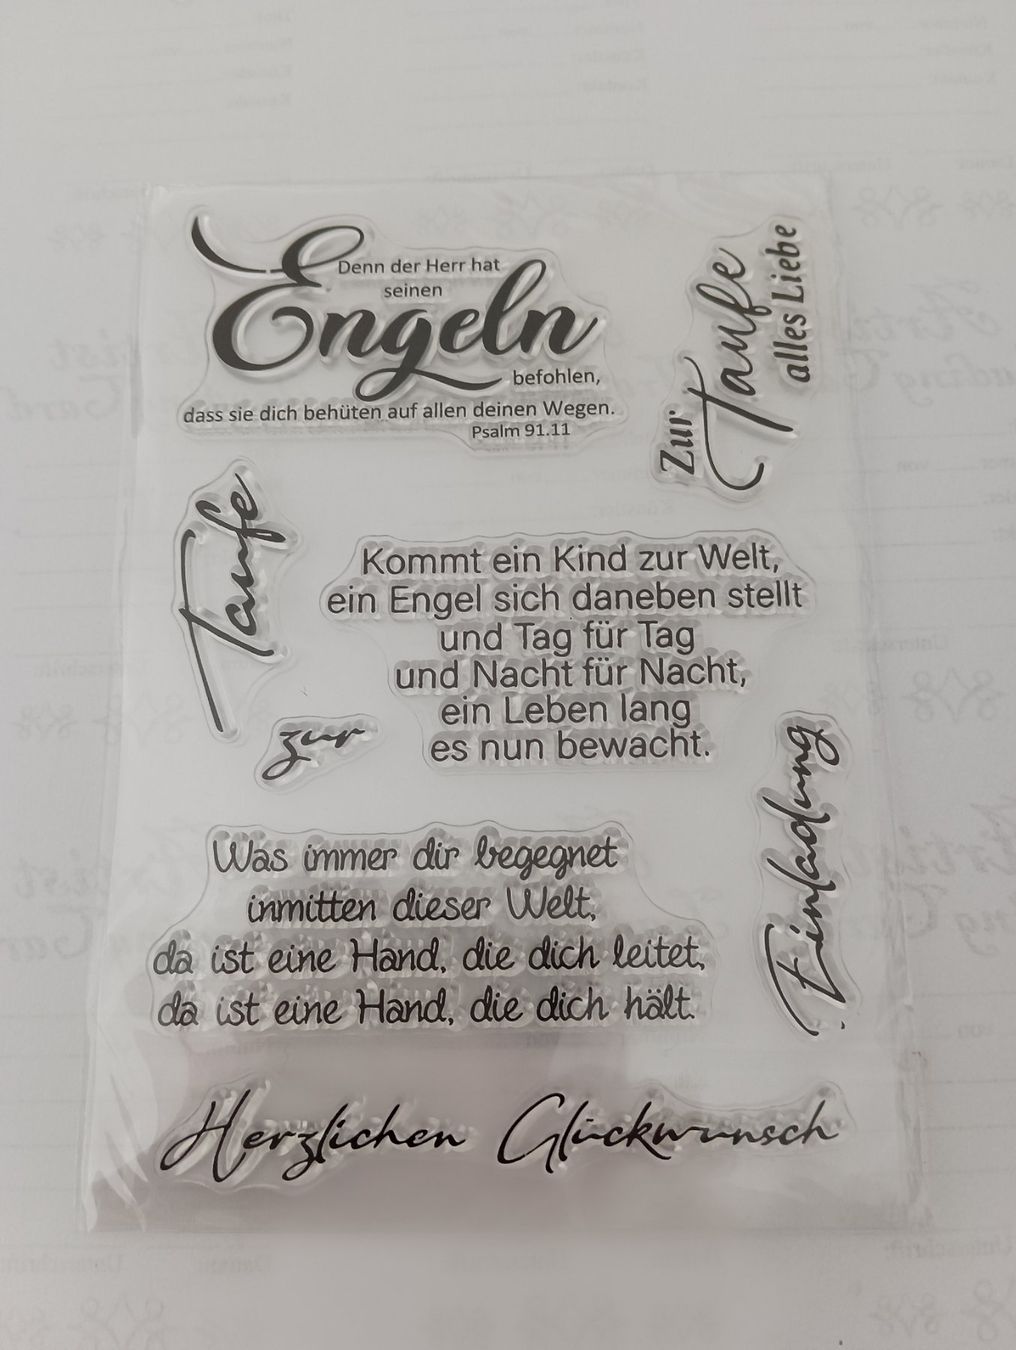 Denn der Herr hat
seinen
Engeln
befohlen,
dass sie dich behüten auf allen deinen Wegen.
Psalm 91.11
Zur
Taufe
alles Liebe
Taufe
zur
Kommt ein Kind zur Welt,
ein Engel sich daneben stellt
und Tag für Tag
und Nacht für Nacht,
ein Leben lang
es nun bewacht.
Einladung
Was immer dir begegnet
inmitten dieser Welt,
da ist eine Hand, die dich leitet,
da ist eine Hand, die dich hält.
Herzlichen Glückwunsch